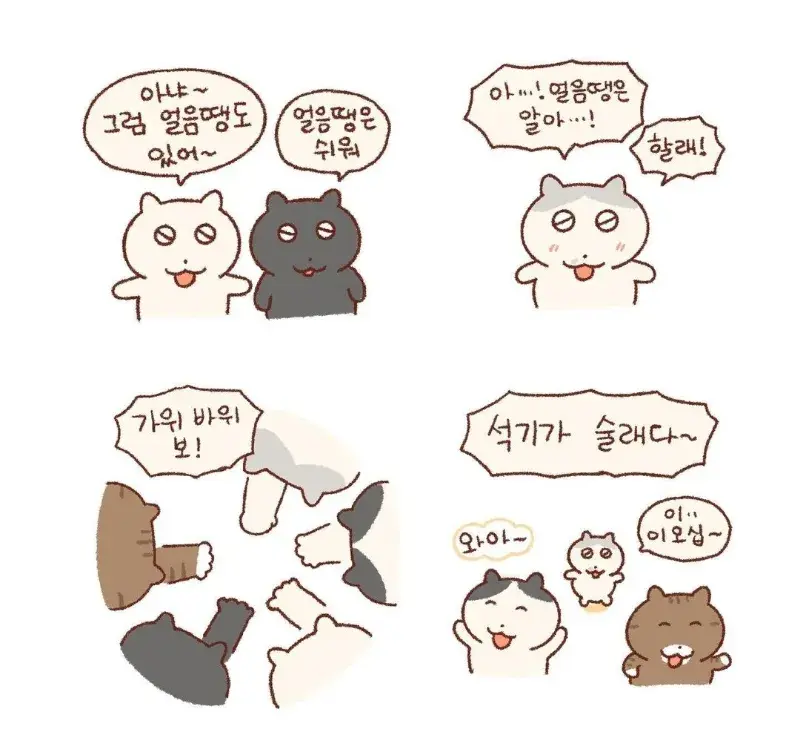 아냐~
그럼 얼음땡도
있어~
얼음땡은
쉬워
아...! 얼음땡은
알아...!
할래!
가위 바위
보!
석기가 술래다~
와아~
이..
이오십~